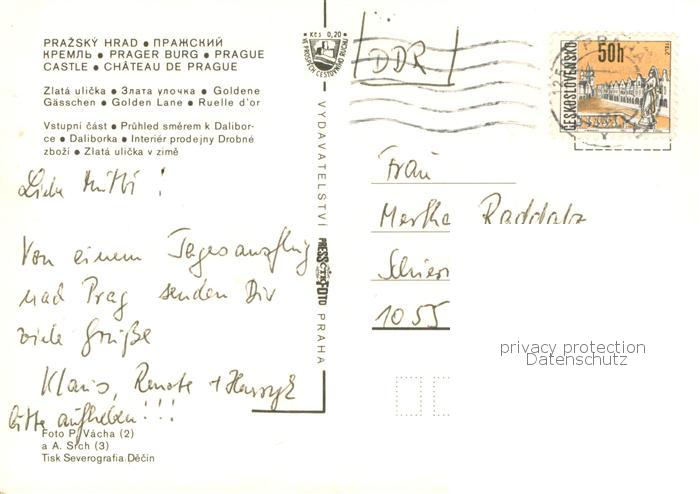 PRAŽSKÝ HRAD ● ПРАЖСКИЙ
КРЕМЛЬ ● PRAGER BURG ● PRAGUE
CASTLE ● CHÂTEAU DE PRAGUE
Zlatá ulička ● Злата улочка ● Goldene
Gässchen ● Golden Lane ● Ruelle d'or
Vstupní část ● Průhled směrem k Dalibor-
ce ● Daliborka ● Interiér prodejny Drobné
zboží ● Zlatá ulička v zimě
Liebe Mutti!
Von einem Tagesausflug
nach Prag senden Dir
viele Grüße
Klaus, Renate +
bitte aufheben!!!
Foto P. Vácha (2)
a A. Srch (3)
Tisk Severografia Děčín
Kčs 0,20
VE PROSPĚCH CESTOVNÍHO RUCHU
VYDAVATELSTVÍ PRESSFOTO PRAHA
ČTK
DDR
PRAHA
ČESKOSLOVENSKO
50h
TELČ
Frau
Raddatz
1055
privacy protection
Datenschutz